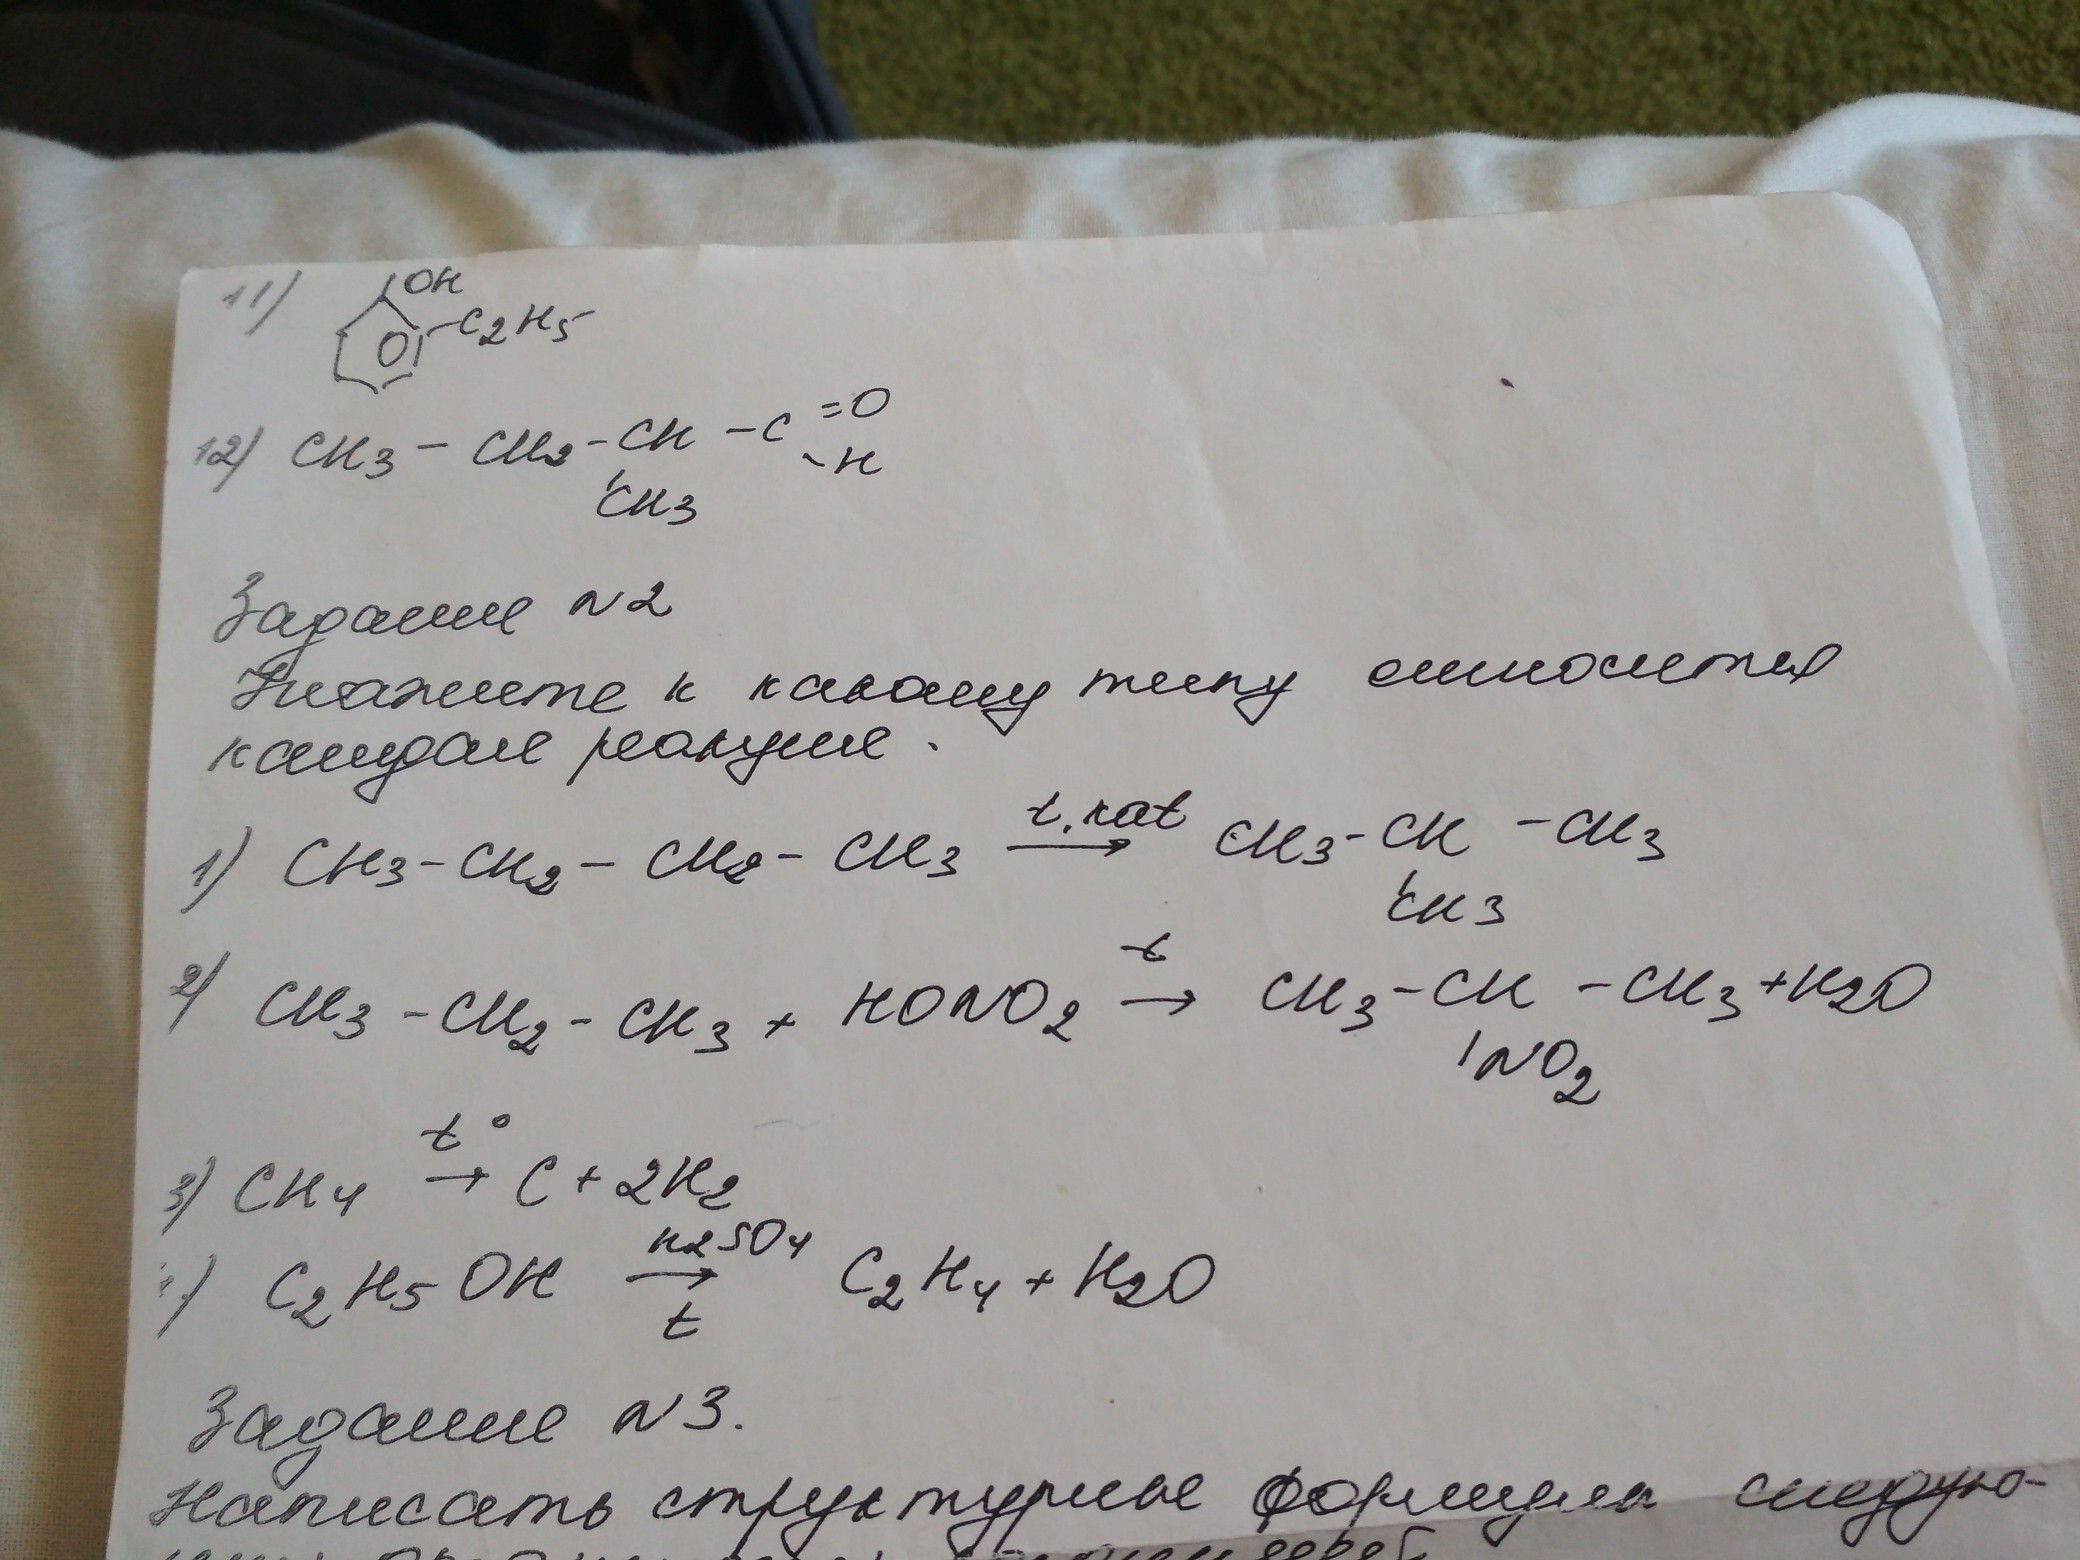 11) OH
C2H5
12) CH3 – CH2 – CH – C =O
–H
CH3
Задание N2
Укажите к какому типу относится
каждая реакция.
1) CH3 – CH2 – CH2 – CH3 t, kat → CH3 – CH – CH3
CH3
2) CH3 – CH2 – CH3 + HONO2 t → CH3 – CH – CH3 + H2O
NO2
3) CH4 t° → C + 2H2
) C2H5OH H2SO4 → t C2H4 + H2O
Задание N3.
Написать структурные формулы следую-